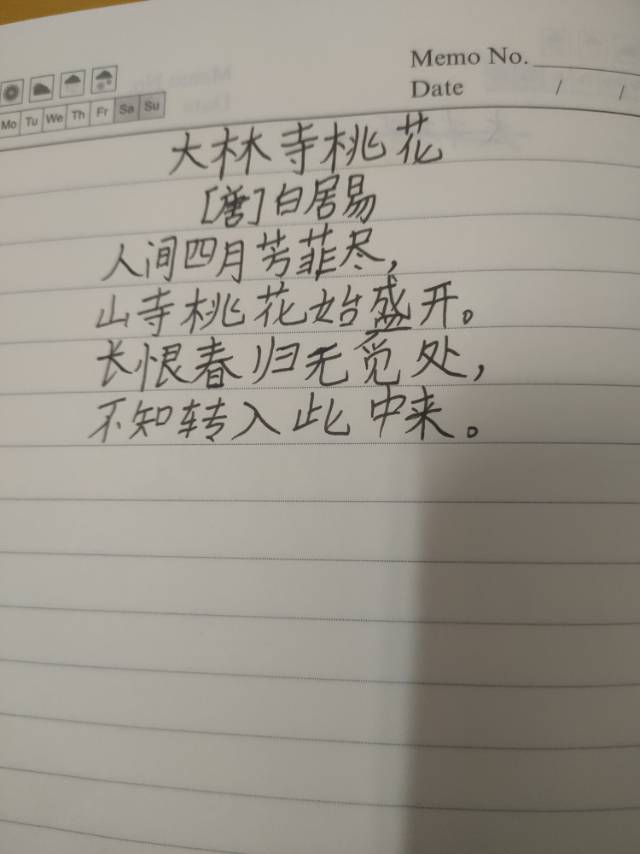 Memo No.
Date / /
Mo Tu We Th Fr Sa Su
大林寺桃花
[唐]白居易
人间四月芳菲尽,
山寺桃花始盛开。
长恨春归无觅处,
不知转入此中来。